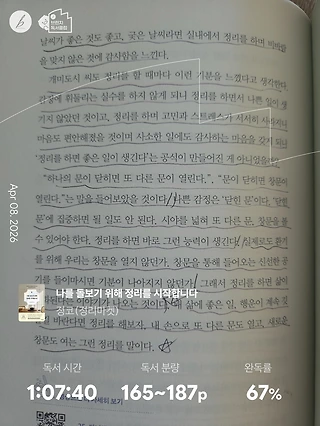 한빈치
독서모임
날씨가 좋은 것도 좋고, 궂은 날씨라면 실내에서 정리를 하며 비바람
을 맞지 않은 것에 감사함을 느낀다.
개미도시 씨도 정리를 할 때마다 이런 기분을 느꼈다고 생각한다.
감정에 휘둘리는 실수를 하지 않게 되니 정리를 하면서 나쁜 일이 생
기지 않았던 것이고, 정리를 하며 고민과 스트레스가 서서히 사라지니
마음도 편안해졌을 것이며 사소한 일에도 감사하는 마음을 갖게 되니
'정리를 하면 좋은 일이 생긴다'는 공식이 만들어진 게 아니었을까.
"하나의 문이 닫히면 또 다른 문이 열린다.", "문이 닫히면 창문이
열린다."는 말을 들어보았을 것이다. 나쁜 감정은 '닫힌 문'이다. '닫힌
문'에 집중하면 될 일도 안 된다. 시야를 넓혀 또 다른 문, 창문을 볼
수 있어야 한다. 정리를 하면 바로 그런 능력이 생긴다. 실제로도 환기
를 위해 우리는 창문을 열지 않던가. 창문을 통해 들어오는 신선한 공
기를 들이마시면 기분이 나아지지 않던가. 그래서 정리를 하면 삶이
이야기가 나오는 것이다. 내 삶에 좋은 일, 행운이 계속
바란다면 정리를 해보자. 내 손으로 또 다른 문도 열고, 새로운
창문도 여는 그런 정리를 말이다.
Apr 08. 2026
나를 돌보기 위해 정리를 시작합니다
정코(정리마켓)
독서 시간
독서 분량
완독률
1:07:40
165~187p
67%
보기